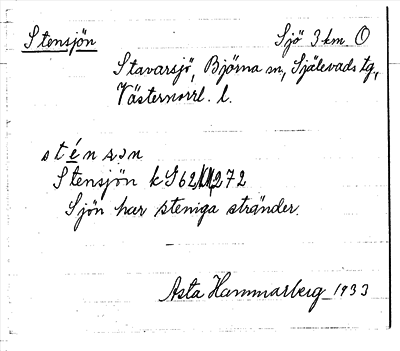 Stensjön Sjö 3 km O
Stavarsjö, Björna sn, Själevads tg.,
Västernorrl. l.
sténsɔn
Stensjön k G62 272
Sjön har steniga stränder.
Asta Hammarberg 1933